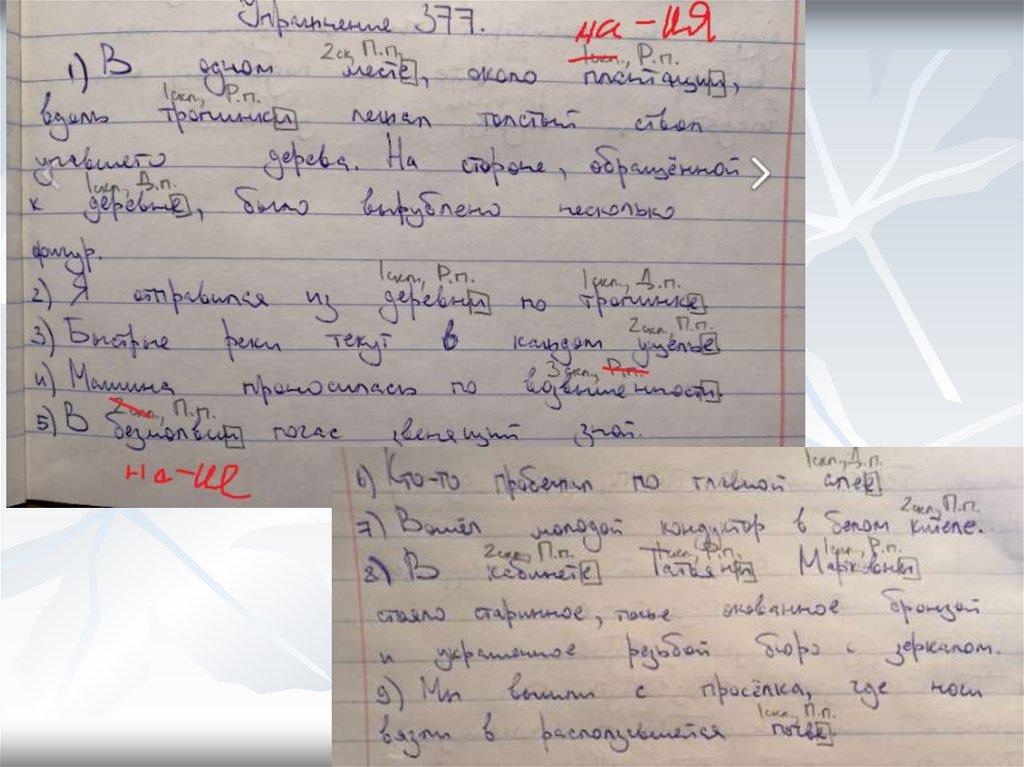 Упражнение 377.
на -ия
2ск. П.п. 1скл., Р.п.
1) В одном месте, около плантации,
1скл., Р.п.
вдоль тропинки лежал толстый ствол
упавшего дерева. На стороне, обращённой
1скл., Д.п.
к деревне, было вырублено несколько
фигур.
1скл., Р.п. 1скл., Д.п.
2) Я отправился из деревни по тропинке
2скл., П.п.
3) Быстрые реки текут в каждом ущелье
3скл., Р.п.
4) Машина проносилась по возвышенности.
2скл., П.п.
5) В безмолвии погас звенящий зной.
на -ие
1скл., Д.п.
6) Кто-то пробежал по главной аллее
2скл, П.п.
7) Вошёл молодой кондуктор в белом кителе.
2скл., П.п. 1скл., Р.п. 1скл., Р.п.
8) В кабинете Татьяны Марковны
стояло старинное, тоже окованное бронзой
и украшенное резьбой бюро с зеркалом.
9) Мы вышли с просёлка, где ноги
1скл., П.п.
вязли в расползшейся почве.